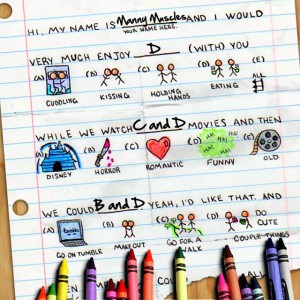 HI, MY NAME IS Manny Muscles AND I WOULD
YOUR NAME HERE.
VERY MUCH ENJOY D (WITH) YOU
(A) (B) (C) (D) (E)
ALL
CUDDLING KISSING HOLDING HANDS EATING
WHILE WE WATCH C and D MOVIES AND THEN
(A) (B) (C) (D) (E)
HA! HA! HA!
DISNEY HORROR ROMANTIC FUNNY OLD
WE COULD B and D YEAH, I'D LIKE THAT. AND
(A) (B) (C) (D)
tumblr.
GO ON TUMBLR MAKE OUT GO FOR A WALK DO CUTE COUPLE THINGS